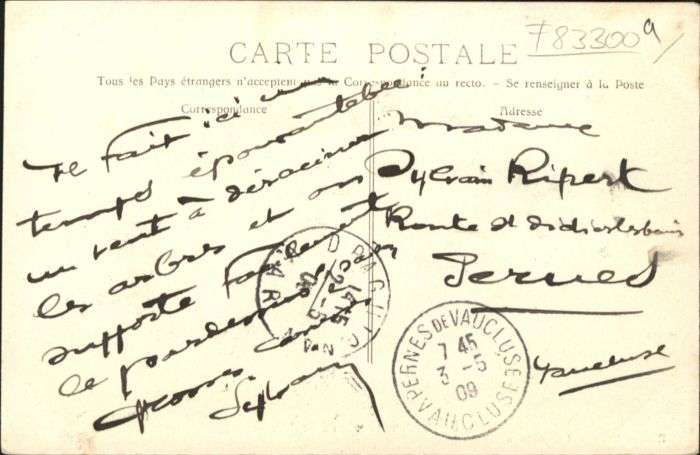 783300 a
CARTE POSTALE
Tous les Pays étrangers n'acceptent pas la Correspondance au recto. - Se renseigner à la Poste
Correspondance
Adresse
Il fait ici un
temps épouvantable:
un vent à déraciner
les arbres et on
supporte facilement
le pardessus.
Grosses
Sylvain
Madame
Sylvain Ripert
Route de
Pernes
Vaucluse
DRAGUIGNAN
VAR
PERNES DE VAUCLUSE
7 45
3 -5
09
VAUCLUSE